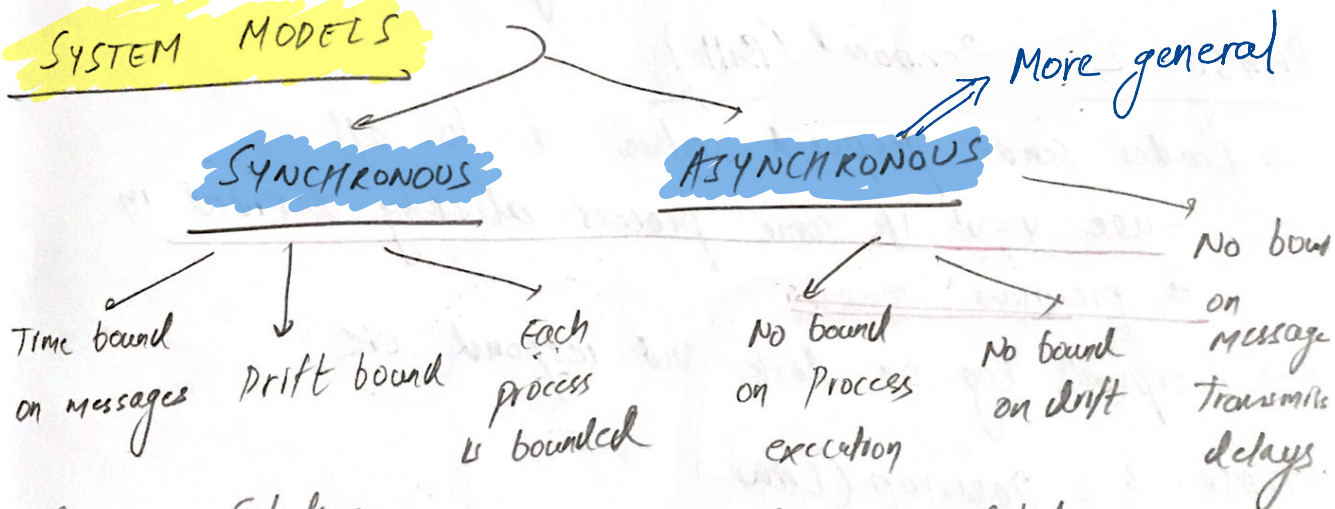 SYSTEM MODELS
More general
SYNCHRONOUS
ASYNCHRONOUS
Time bound
on messages
Drift bound
Each
process
is bounded
No bound
on Process
execution
No bound
on drift
No boun
on
message
Transmis
delays